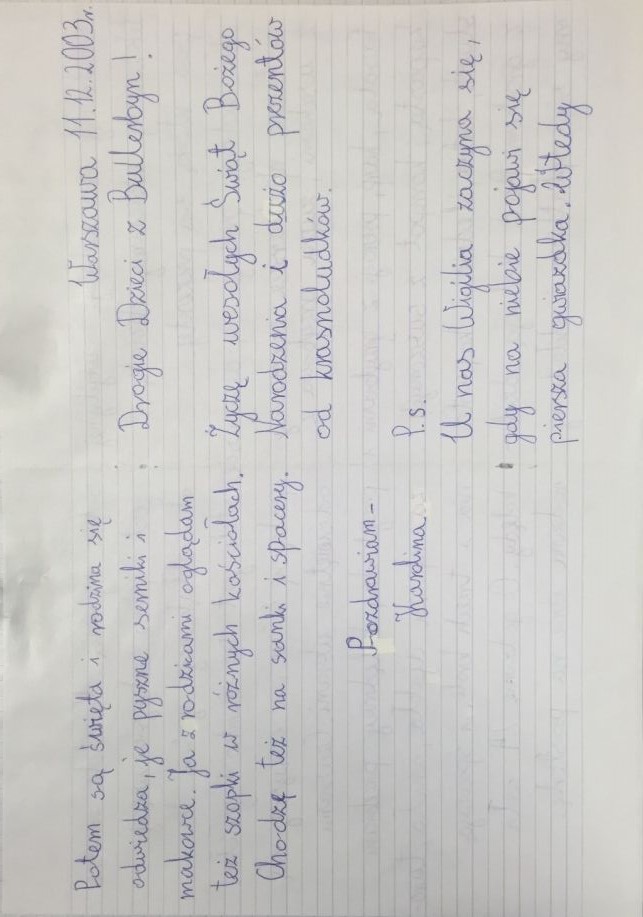 Warszawa 11.12.2003r.
Drogie Dzieci z Bullerbyn!
Życzę wesołych Świąt Bożego
Narodzenia i dużo prezentów
od krasnoludków.
P.s.
U nas Wigilia zaczyna się,
gdy na niebie pojawi się
piersza gwiazdka. Wtedy
Potem są święta i rodzina się
odwiedza, je pyszne serniki i
makowce. Ja z rodzicami oglądam
też szopki w różnych kościołach.
Chodzę też na sanki i spacery.
Pozdrawiam -
Karolina